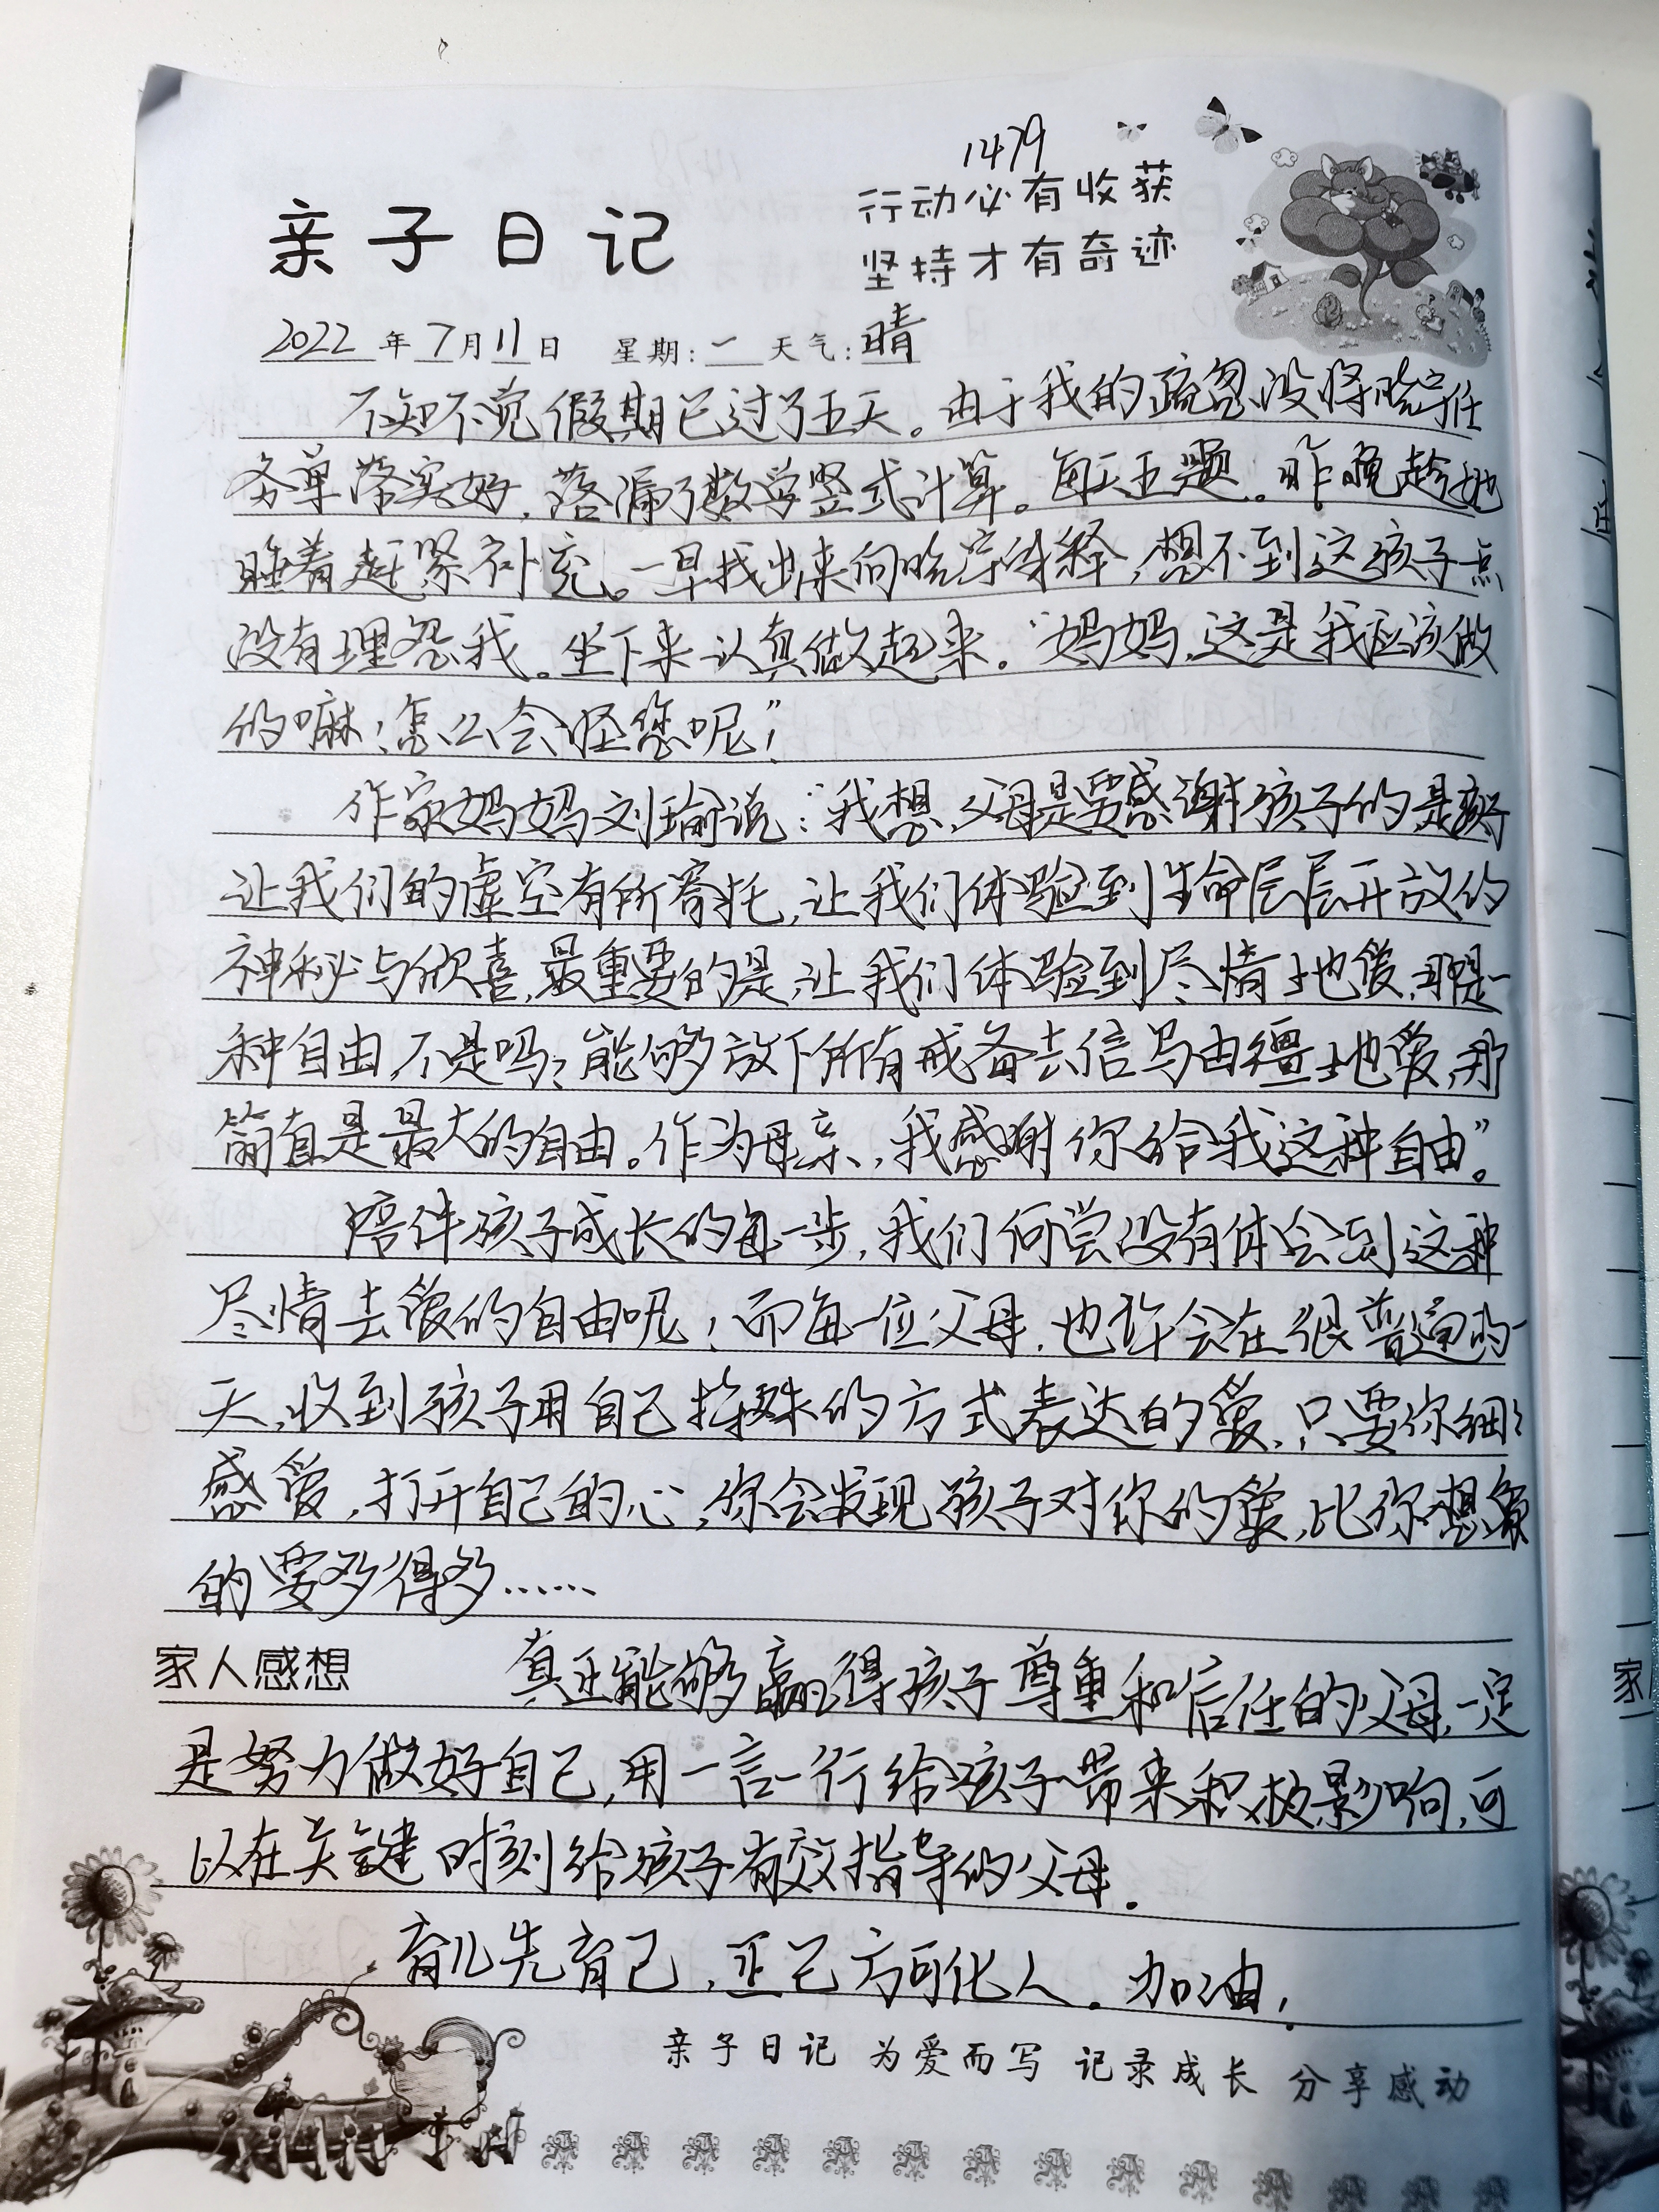 1479
行动必有收获
亲子日记
坚持才有奇迹
2022年7月11日 星期:一 天气:晴
不知不觉假期已过了五天。由于我的疏忽没将晗宇任
务单落实好,落漏了数学竖式计算。每天五题。昨晚趁她
睡着赶紧补充。一早找出来向晗宇解释,想不到这孩子一点
没有埋怨我。坐下来认真做起来。“妈妈,这是我应该做
的嘛!怎么会怪您呢!”
作家妈妈刘瑜说:“我想,父母是要感谢孩子的,是孩子
让我们的虚空有所寄托,让我们体验到生命层层开放的
神秘与欣喜,最重要的是,让我们体验到尽情地爱,那是一
种自由,不是吗?能够放下所有戒备去信马由疆地爱,那
简直是最大的自由。作为母亲,我感谢你给我这种自由”。
陪伴孩子成长的每一步,我们何尝没有体会到这种
尽情去爱的自由呢!而每一位父母,也许会在很普通的一
天,收到孩子用自己特殊的方式表达的爱,只要你细细
感受,打开自己的心,你会发现孩子对你的爱,比你想象
的要多得多……
家人感想 真正能够赢得孩子尊重和信任的父母,一定
是努力做好自己,用一言一行给孩子带来积极影响,可
以在关键时刻给孩子有效指导的父母。
育儿先育己,正己方可化人。加油!
亲子日记 为爱而写 记录成长 分享感动
家